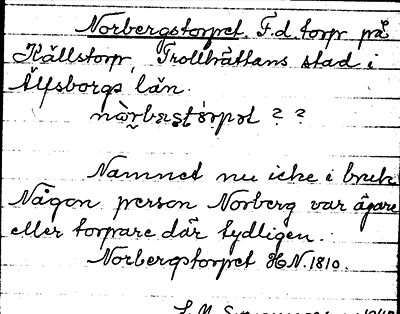 Norbergstorpet. F.d. torp på
Källstorp, Trollhättans stad i
Älfsborgs län.
nòrbærstórpət ? ?
Namnet nu icke i bruk.
Någon person Norberg var ägare
eller torpare där tydligen.
Norbergstorpet HN. 1810.